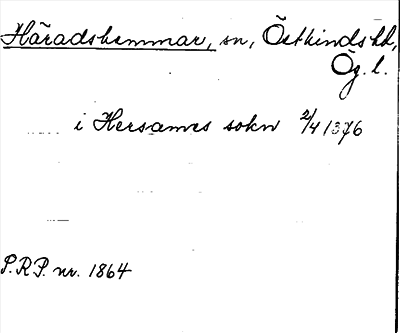 Häradshammar, sn, Östkinds hd,
Ög. l.
i Hersames sokn 2/4 1376
P.R.P. nr. 1864